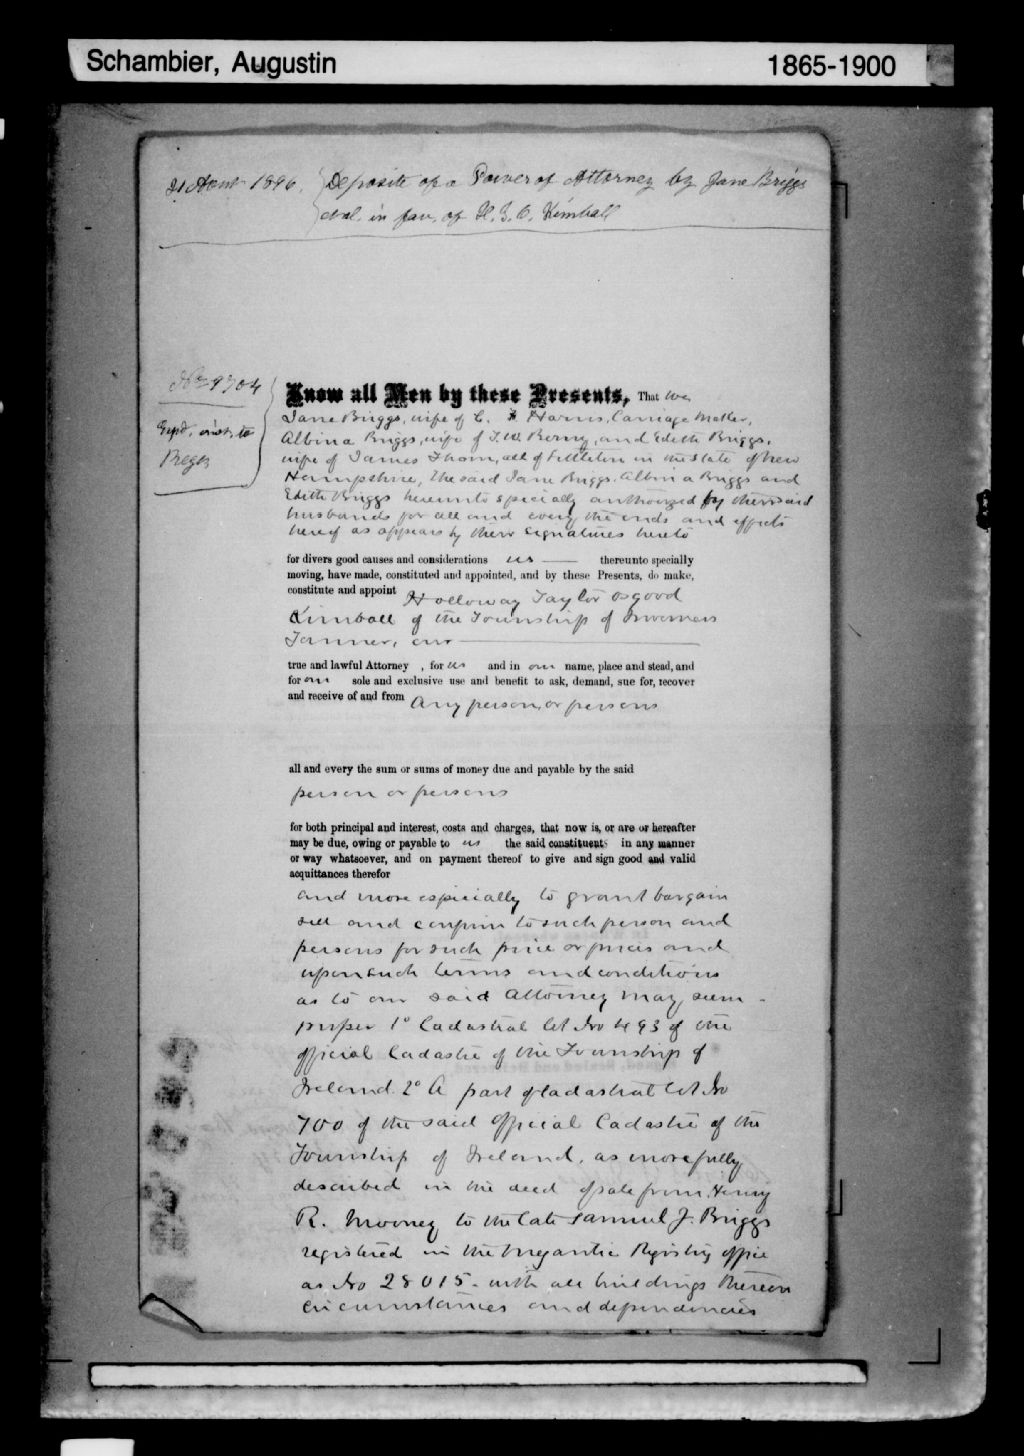 Schambier, Augustin
1865-1900
21 Août 1896.
Deposite of a Power of Attorney by Jane Briggs
et al. in fav. of H. T. O. Kimball
No 9704
Know all Men by these Presents, That we,
Jane Briggs, wife of C. Harris, Carriage Maker,
Albina Briggs, wife of T. W. Berry, and Edith Briggs,
wife of James Thom, all of Littleton in the State of New
Hampshire, the said Jane Briggs, Albina Briggs and
Edith Briggs hereunto specially authorized by their said
husbands for all and every the ends and effects
hereof as appears by their signatures hereto
for divers good causes and considerations us thereunto specially
moving, have made, constituted and appointed, and by these Presents, do make,
constitute and appoint Holloway Taylor Osgood
Kimball of the Township of Inverness
Tanner, our
true and lawful Attorney , for us and in our name, place and stead, and
for our sole and exclusive use and benefit to ask, demand, sue for, recover
and receive of and from Any person, or persons
all and every the sum or sums of money due and payable by the said
person or persons
for both principal and interest, costs and charges, that now is, or are or hereafter
may be due, owing or payable to us the said constituents in any manner
or way whatsoever, and on payment thereof to give and sign good and valid
acquittances therefor
and more especially to grant bargain
sell and confirm to such person and
persons for such price or prices and
upon such terms and conditions
as to our said Attorney may seem
proper 1° Cadastral lot No 493 of the
official Cadastre of the Township of
Ireland. 2° A part of cadastral lot No
700 of the said official Cadastre of the
Township of Ireland, as more fully
described in the deed of sale from Henry
R. Mooney to the late Samuel J. Briggs
registered in the Megantic Registry office
as No 28015 - with all buildings thereon
circumstances and dependencies